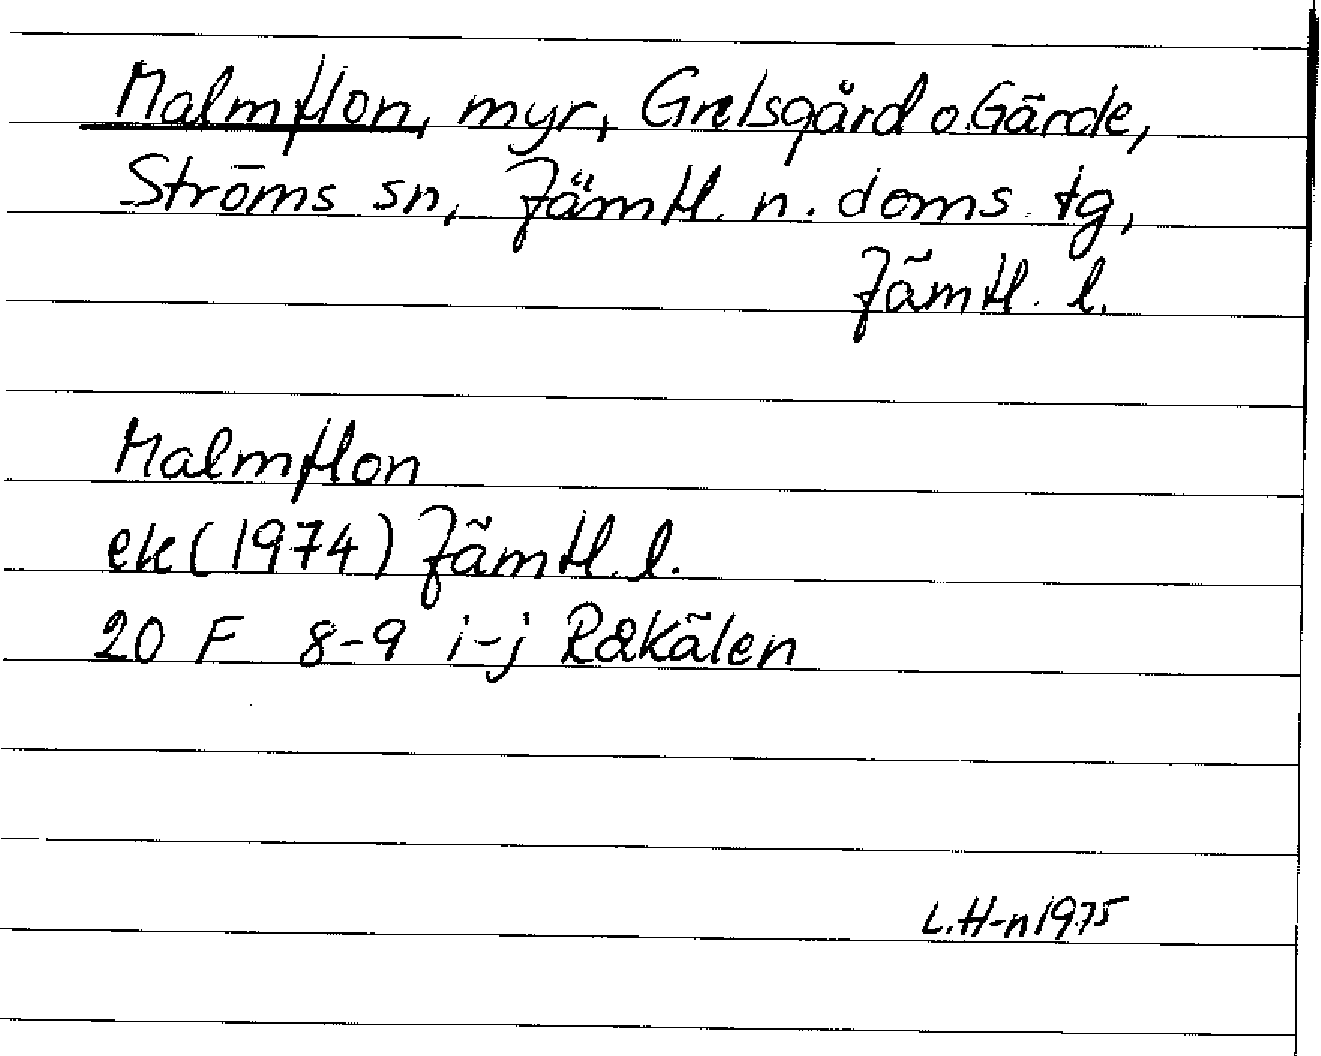 Malmflon, myr, Grelsgård o. Gärde,
Ströms sn, Jämtl. n. doms. tg,
Jämtl. l.
Malmflon
ek (1974) Jämtl. l.
20 F 8-9 i-j Raukälen
L. H-n 1975